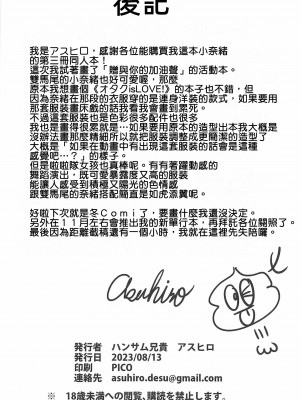 後記
我是アスヒロ，感謝各位能購買我這本小奈緒
的第三冊同人本！
這次我試著畫了「贈與你的加油聲」的活動本。
雙馬尾的小奈緒也好可愛喔，那麼
原本我想畫個《オタクisLOVE!》的本子也不錯，但
因為奈緒在那段的衣服穿的是連身洋裝的款式，如果要用
那套服裝畫床戲的話我看我會畫到累死。
不過這套服裝也是色彩很多配件也很多
我也是畫得很累就是…如果要用原本的造型出本我大概是
沒辦法畫那麼精細所以就把服裝調整成更簡潔的造型了
大概是「如果在動畫中有出現這套服裝的話會是這種
感覺吧…？」的樣子。
但是啦啦隊女孩也真棒呢。有有著躍動感的
舞蹈演出，既可愛暴露度又高的服裝
能讓人感受到積極又陽光的色情感
跟雙馬尾的奈緒搭配簡直是如虎添翼呢。
好啦下次就是冬Comi了，要畫什麼我還沒決定。
另外在11月左右會推出我的新單行本，再拜託各位關照了。
最後因為距離截稿還有一個小時，我就在這裡先失陪囉。
asuhiro
発行者 ハンサム兄貴 アスヒロ
発行日 2023/08/13
印刷 PICO
連絡先 asuhiro.desu@gmail.com
※ 18歳未満への閲覧、購読を禁止します。